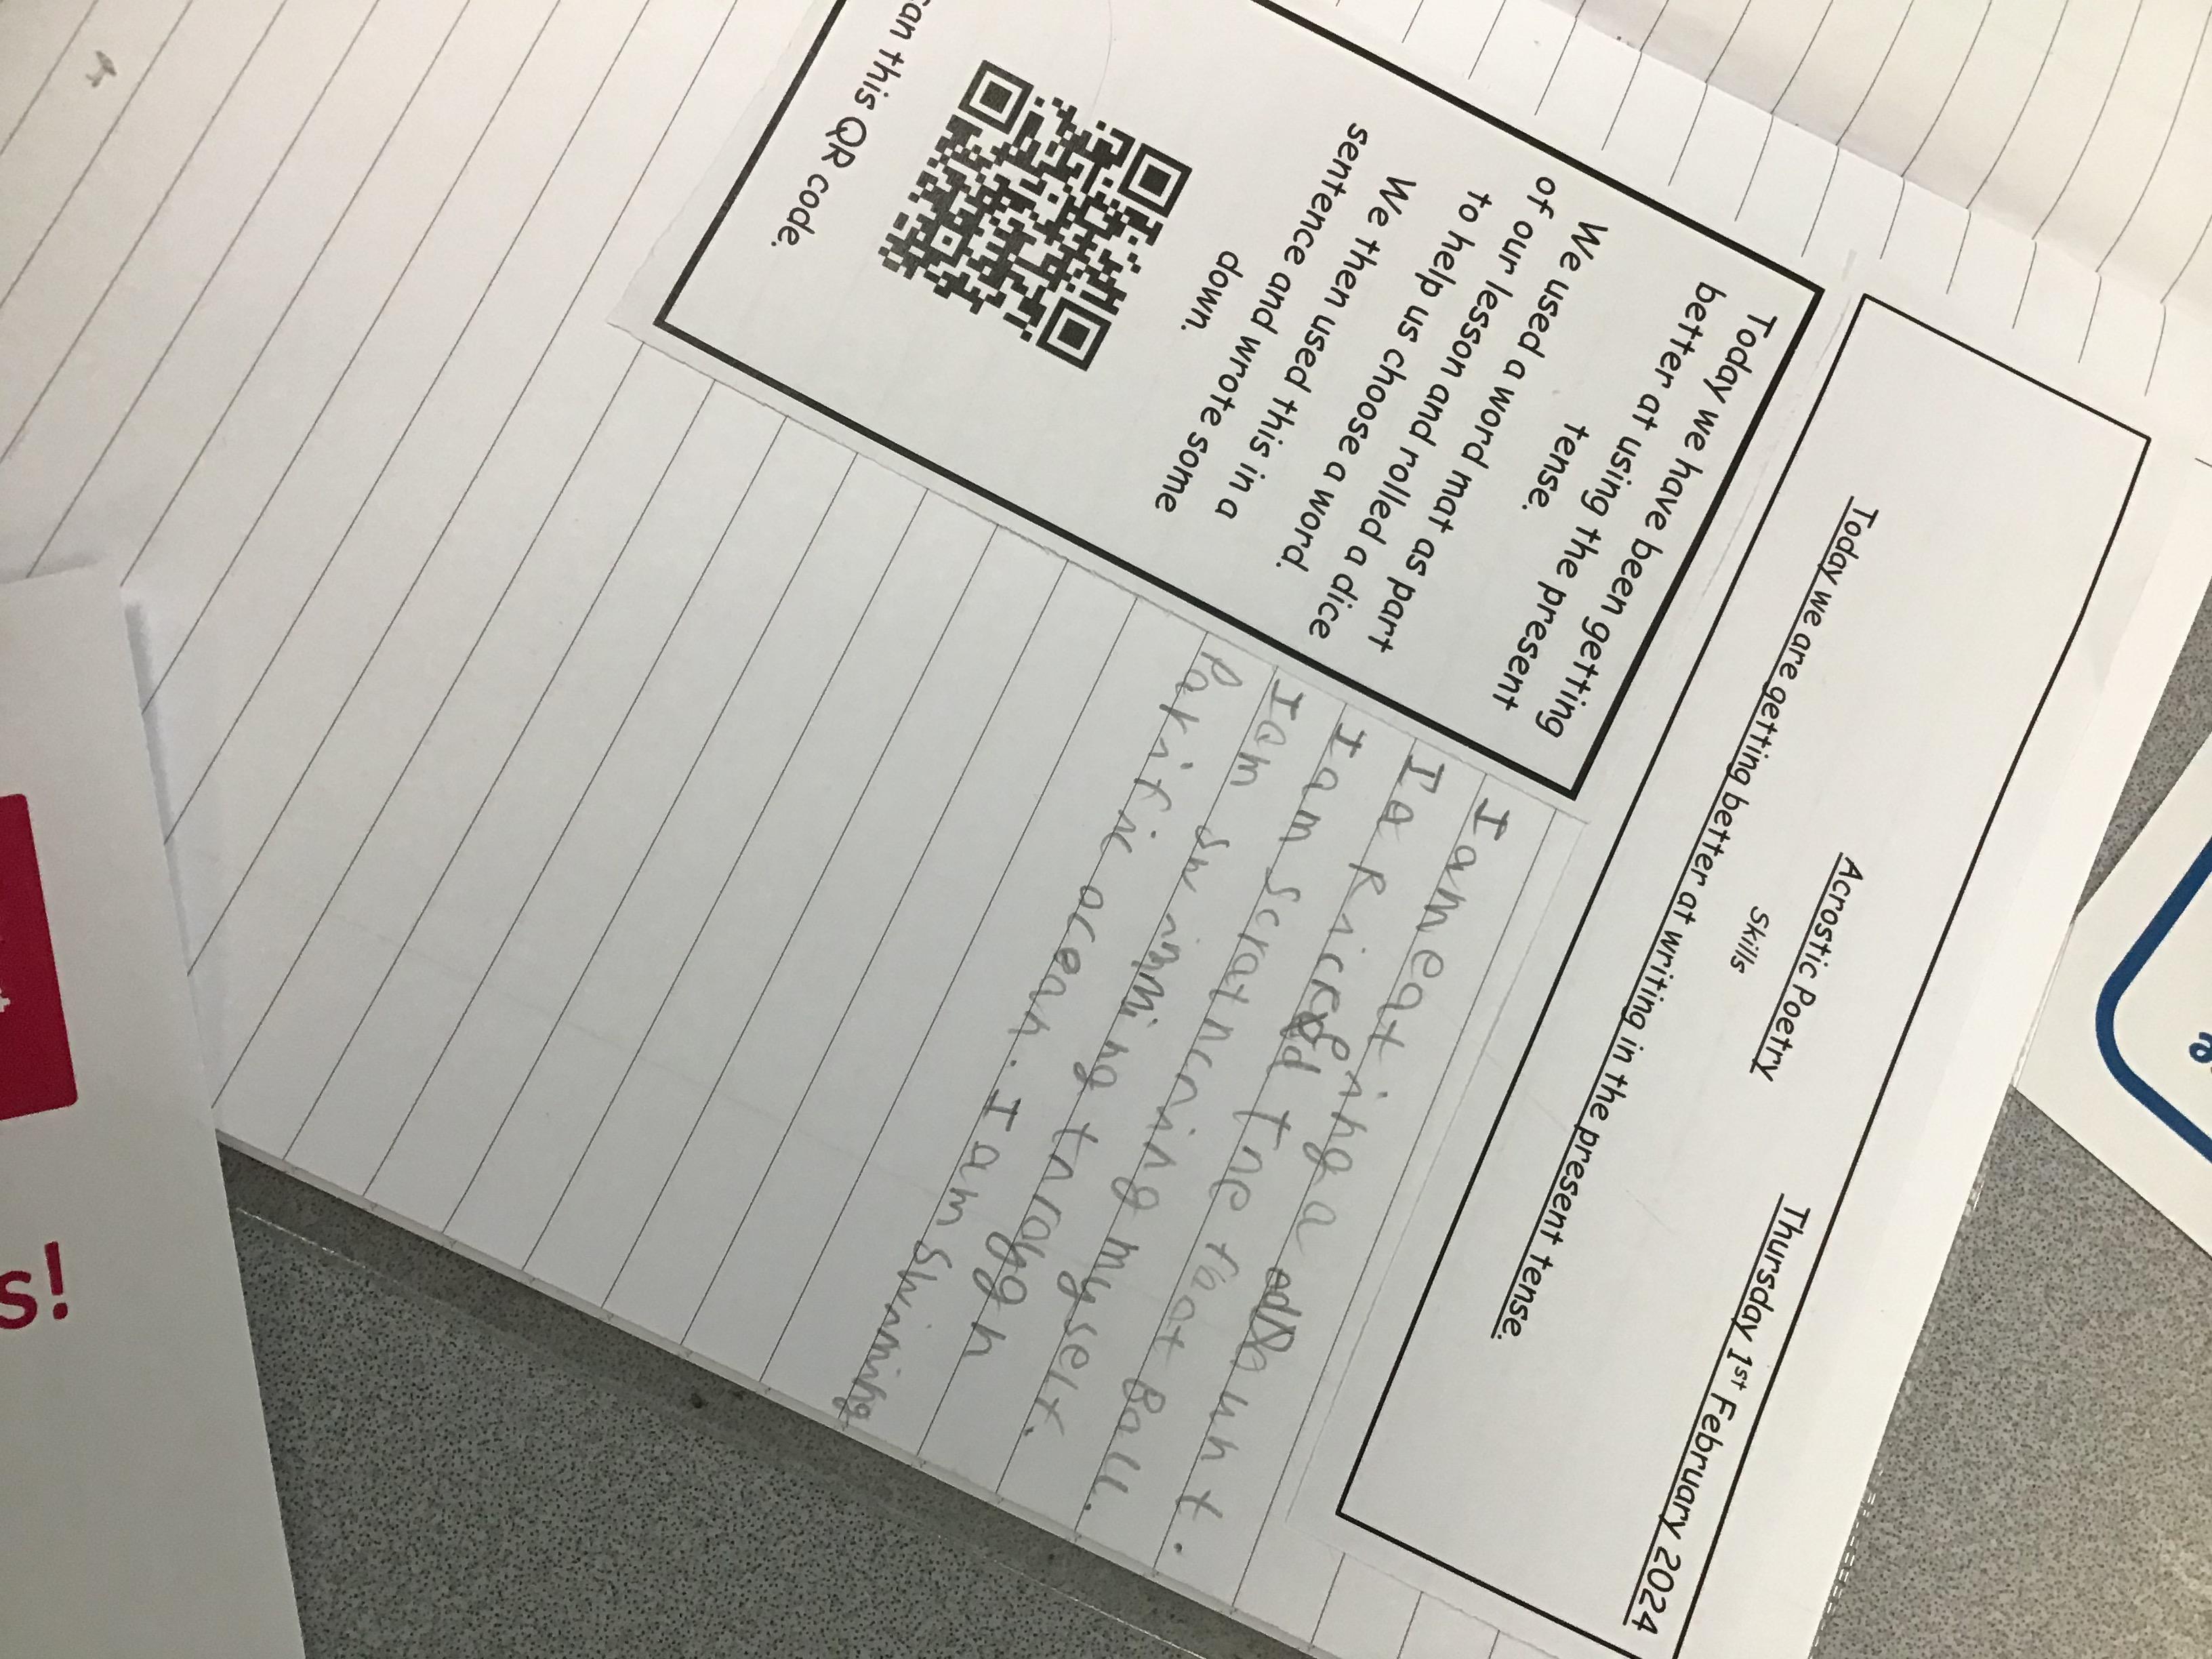 Thursday 1st February 2024
Acrostic Poetry
Skills
Today we are getting better at writing in the present tense.
Today we have been getting
better at using the present
tense.
We used a word mat as part
of our lesson and rolled a dice
to help us choose a word.
We then used this in a
sentence and wrote some
down.
an this QR code.
I am eating a
I a kicked the foot Ball.
I am scratncning myself.
I am swimming through
Pakific ocean. I am swimming
s!